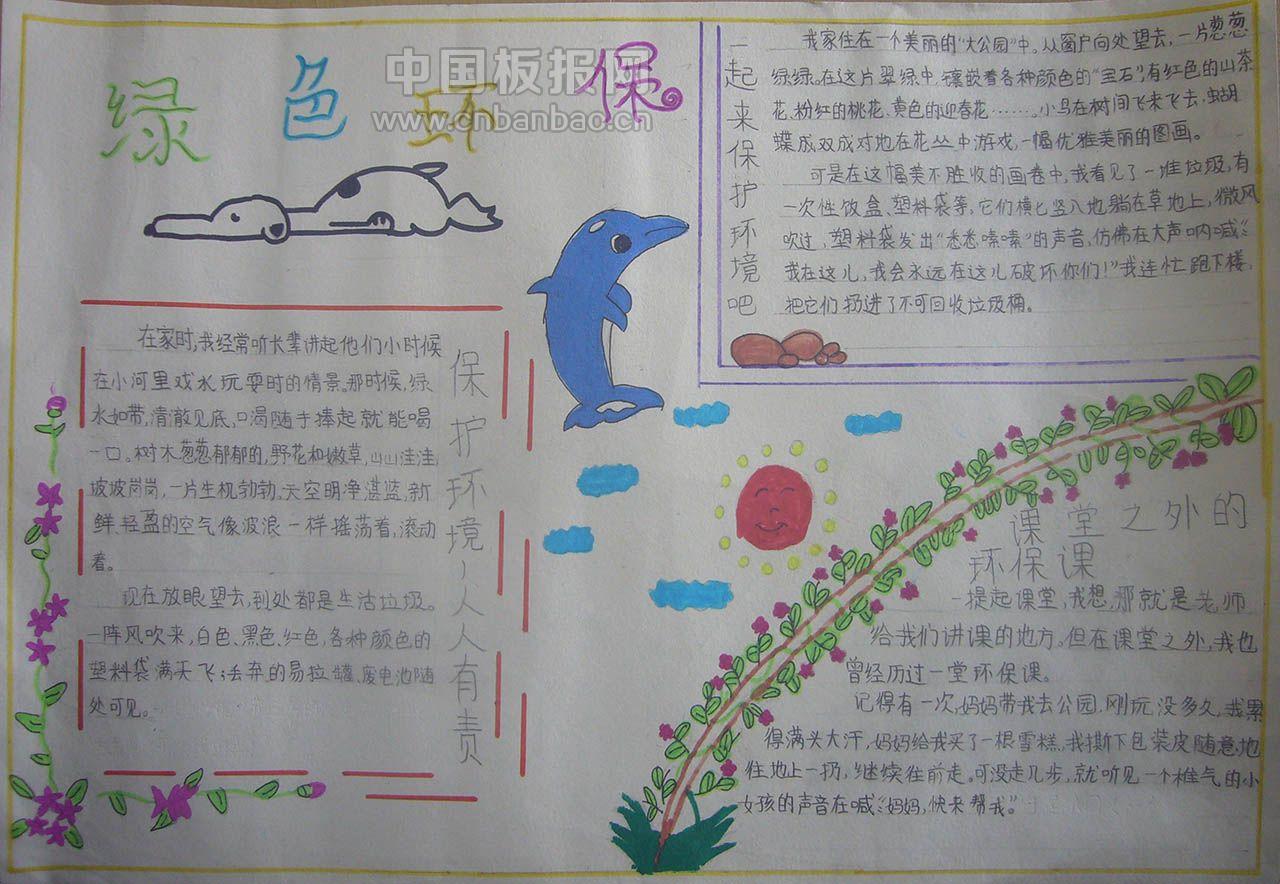 中国板报网
www.cnbanbao.cn
绿色环保
一起来保护环境吧
我家住在一个美丽的“大公园”中。从窗户向处望去,一片葱葱
绿绿。在这片翠绿中,镶嵌着各种颜色的“宝石”,有红色的山茶
花、粉红的桃花、黄色的迎春花……。小鸟在树间飞来飞去,蝴
蝶成双成对地在花丛中游戏,一幅优雅美丽的图画。
可是在这幅美不胜收的画卷中,我看见了一堆垃圾,有
一次性饭盒、塑料袋等,它们横七竖八地躺在草地上,微风
吹过,塑料袋发出“悉悉嗦嗦”的声音,仿佛在大声呐喊:“
我在这儿,我会永远在这儿破坏你们!”我连忙跑下楼,
把它们扔进了不可回收垃圾桶。
保护环境,人人有责
在家时,我经常听长辈讲起他们小时候
在小河里戏水玩耍时的情景。那时候,绿
水如带,清澈见底,口渴随手捧起就能喝
一口。树木葱葱郁郁的,野花和嫩草,山山洼洼,
坡坡岗岗,一片生机勃勃。天空明净湛蓝,新
鲜、轻盈的空气像波浪一样摇荡着,滚动
着。
现在放眼望去,到处都是生活垃圾。
一阵风吹来,白色、黑色、红色,各种颜色的
塑料袋满天飞;丢弃的易拉罐、废电池随
处可见。
课堂之外的
环保课
一提起课堂,我想,那就是老师
给我们讲课的地方。但在课堂之外,我也
曾经历过一堂环保课。
记得有一次,妈妈带我去公园,刚玩没多久,我累
得满头大汗,妈妈给我买了一根雪糕,我撕下包装皮随意地
往地上一扔,继续往前走。可没走几步,就听见一个稚气的小
女孩的声音在喊:“妈妈,快来帮我”。